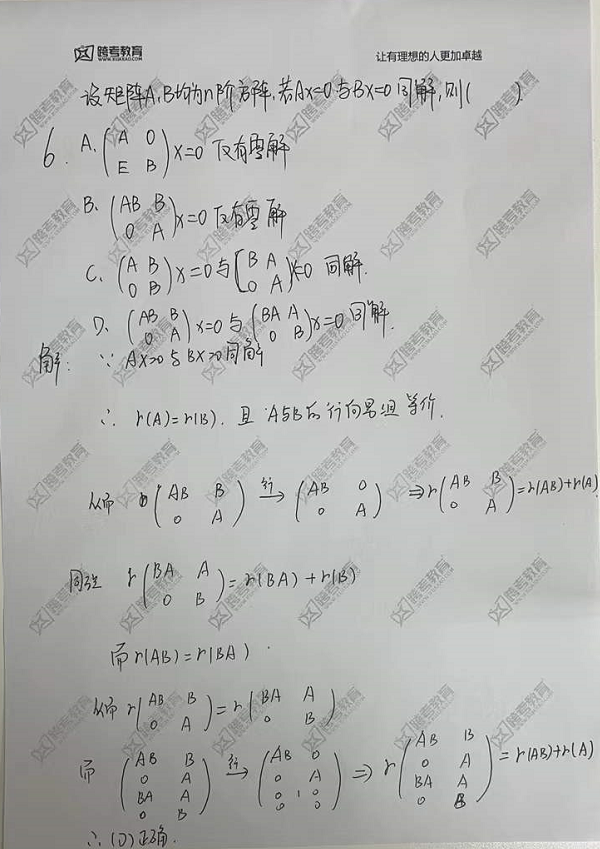 跨考教育
WWW.KUAKAO.COM
让有理想的人更加卓越
设矩阵A,B均为n阶方阵,若Ax=0与Bx=0同解,则( )
6. A. (A 0; E B)x=0 仅有零解
B. (AB B; 0 A)x=0 仅有零解
C. (A B; 0 B)x=0与[B A; 0 A)x=0 同解.
D. (AB B; 0 A)x=0与(BA A; 0 B)x=0同解.
解: ∵ Ax=0与Bx=0同解
∴ r(A)=r(B). 且 A与B的行向量组等价.
从而 (AB B; 0 A) 行→ (AB 0; 0 A) ⇒ r(AB B; 0 A)=r(AB)+r(A).
同理 r(BA A; 0 B)=r(BA)+r(B)
而r(AB)=r(BA)
从而 r(AB B; 0 A)=r(BA A; 0 B)
而 (AB B; 0 A; BA A; 0 B) 行→ (AB 0; 0 A; 0 0; 0 0) ⇒ r(AB B; 0 A; BA A; 0 B)=r(AB)+r(A)
∴ (D)正确.